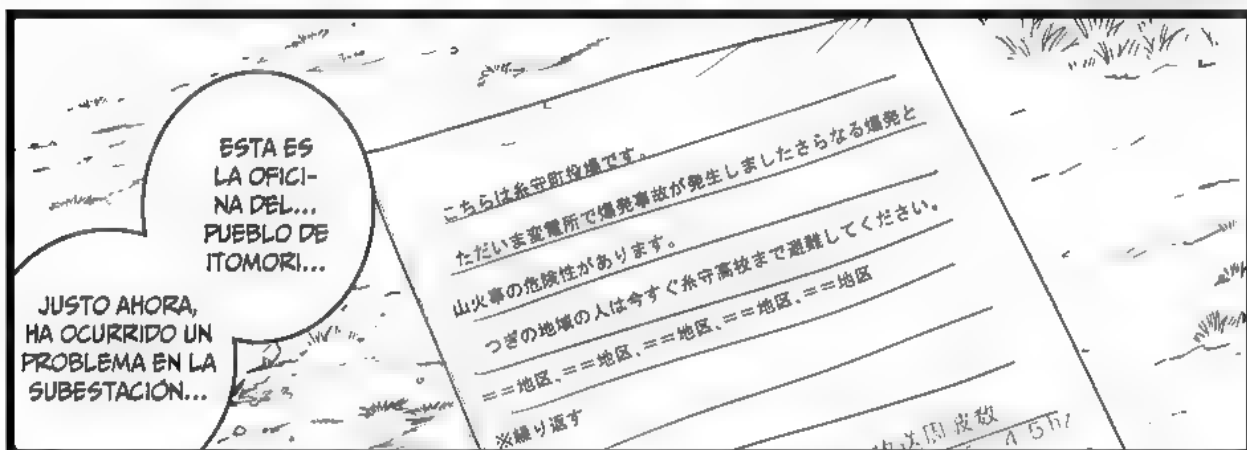 ESTA ES
LA OFICI-
NA DEL...
PUEBLO DE
ITOMORI...
JUSTO AHORA,
HA OCURRIDO UN
PROBLEMA EN LA
SUBESTACIÓN...
こちらは糸守町役場です。
ただいま変電所で爆発事故が発生しましたさらなる爆発と
山火事の危険性があります。
つぎの地域の人は今すぐ糸守高校まで避難してください。
==地区、==地区、==地区、==地区
※繰り返す
放送周波数